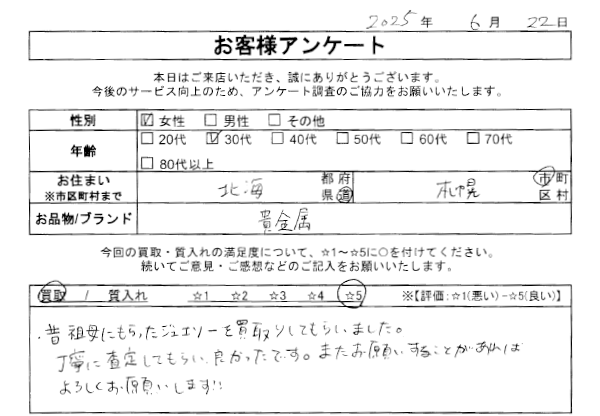 2025年 6月 22日
お客様アンケート
本日はご来店いただき、誠にありがとうございます。
今後のサービス向上のため、アンケート調査のご協力をお願いいたします。
性別 ☑女性 □男性 □その他
年齢 □20代 ☑30代 □40代 □50代 □60代 □70代
□80代以上
お住まい 北海 都府 札幌 市町
※市区町村まで 県道 区村
お品物/ブランド 貴金属
今回の買取・質入れの満足度について、☆1～☆5に○を付けてください。
続いてご意見・ご感想などのご記入をお願いいたします。
買取 / 質入れ ☆1 ☆2 ☆3 ☆4 ☆5 ※【評価:☆1(悪い)−☆5(良い)】
・昔祖母にもらったジュエリーを買取りしてもらいました。
丁寧に査定してもらい良かったです。またお願いすることがあれば
よろしくお願いします!!